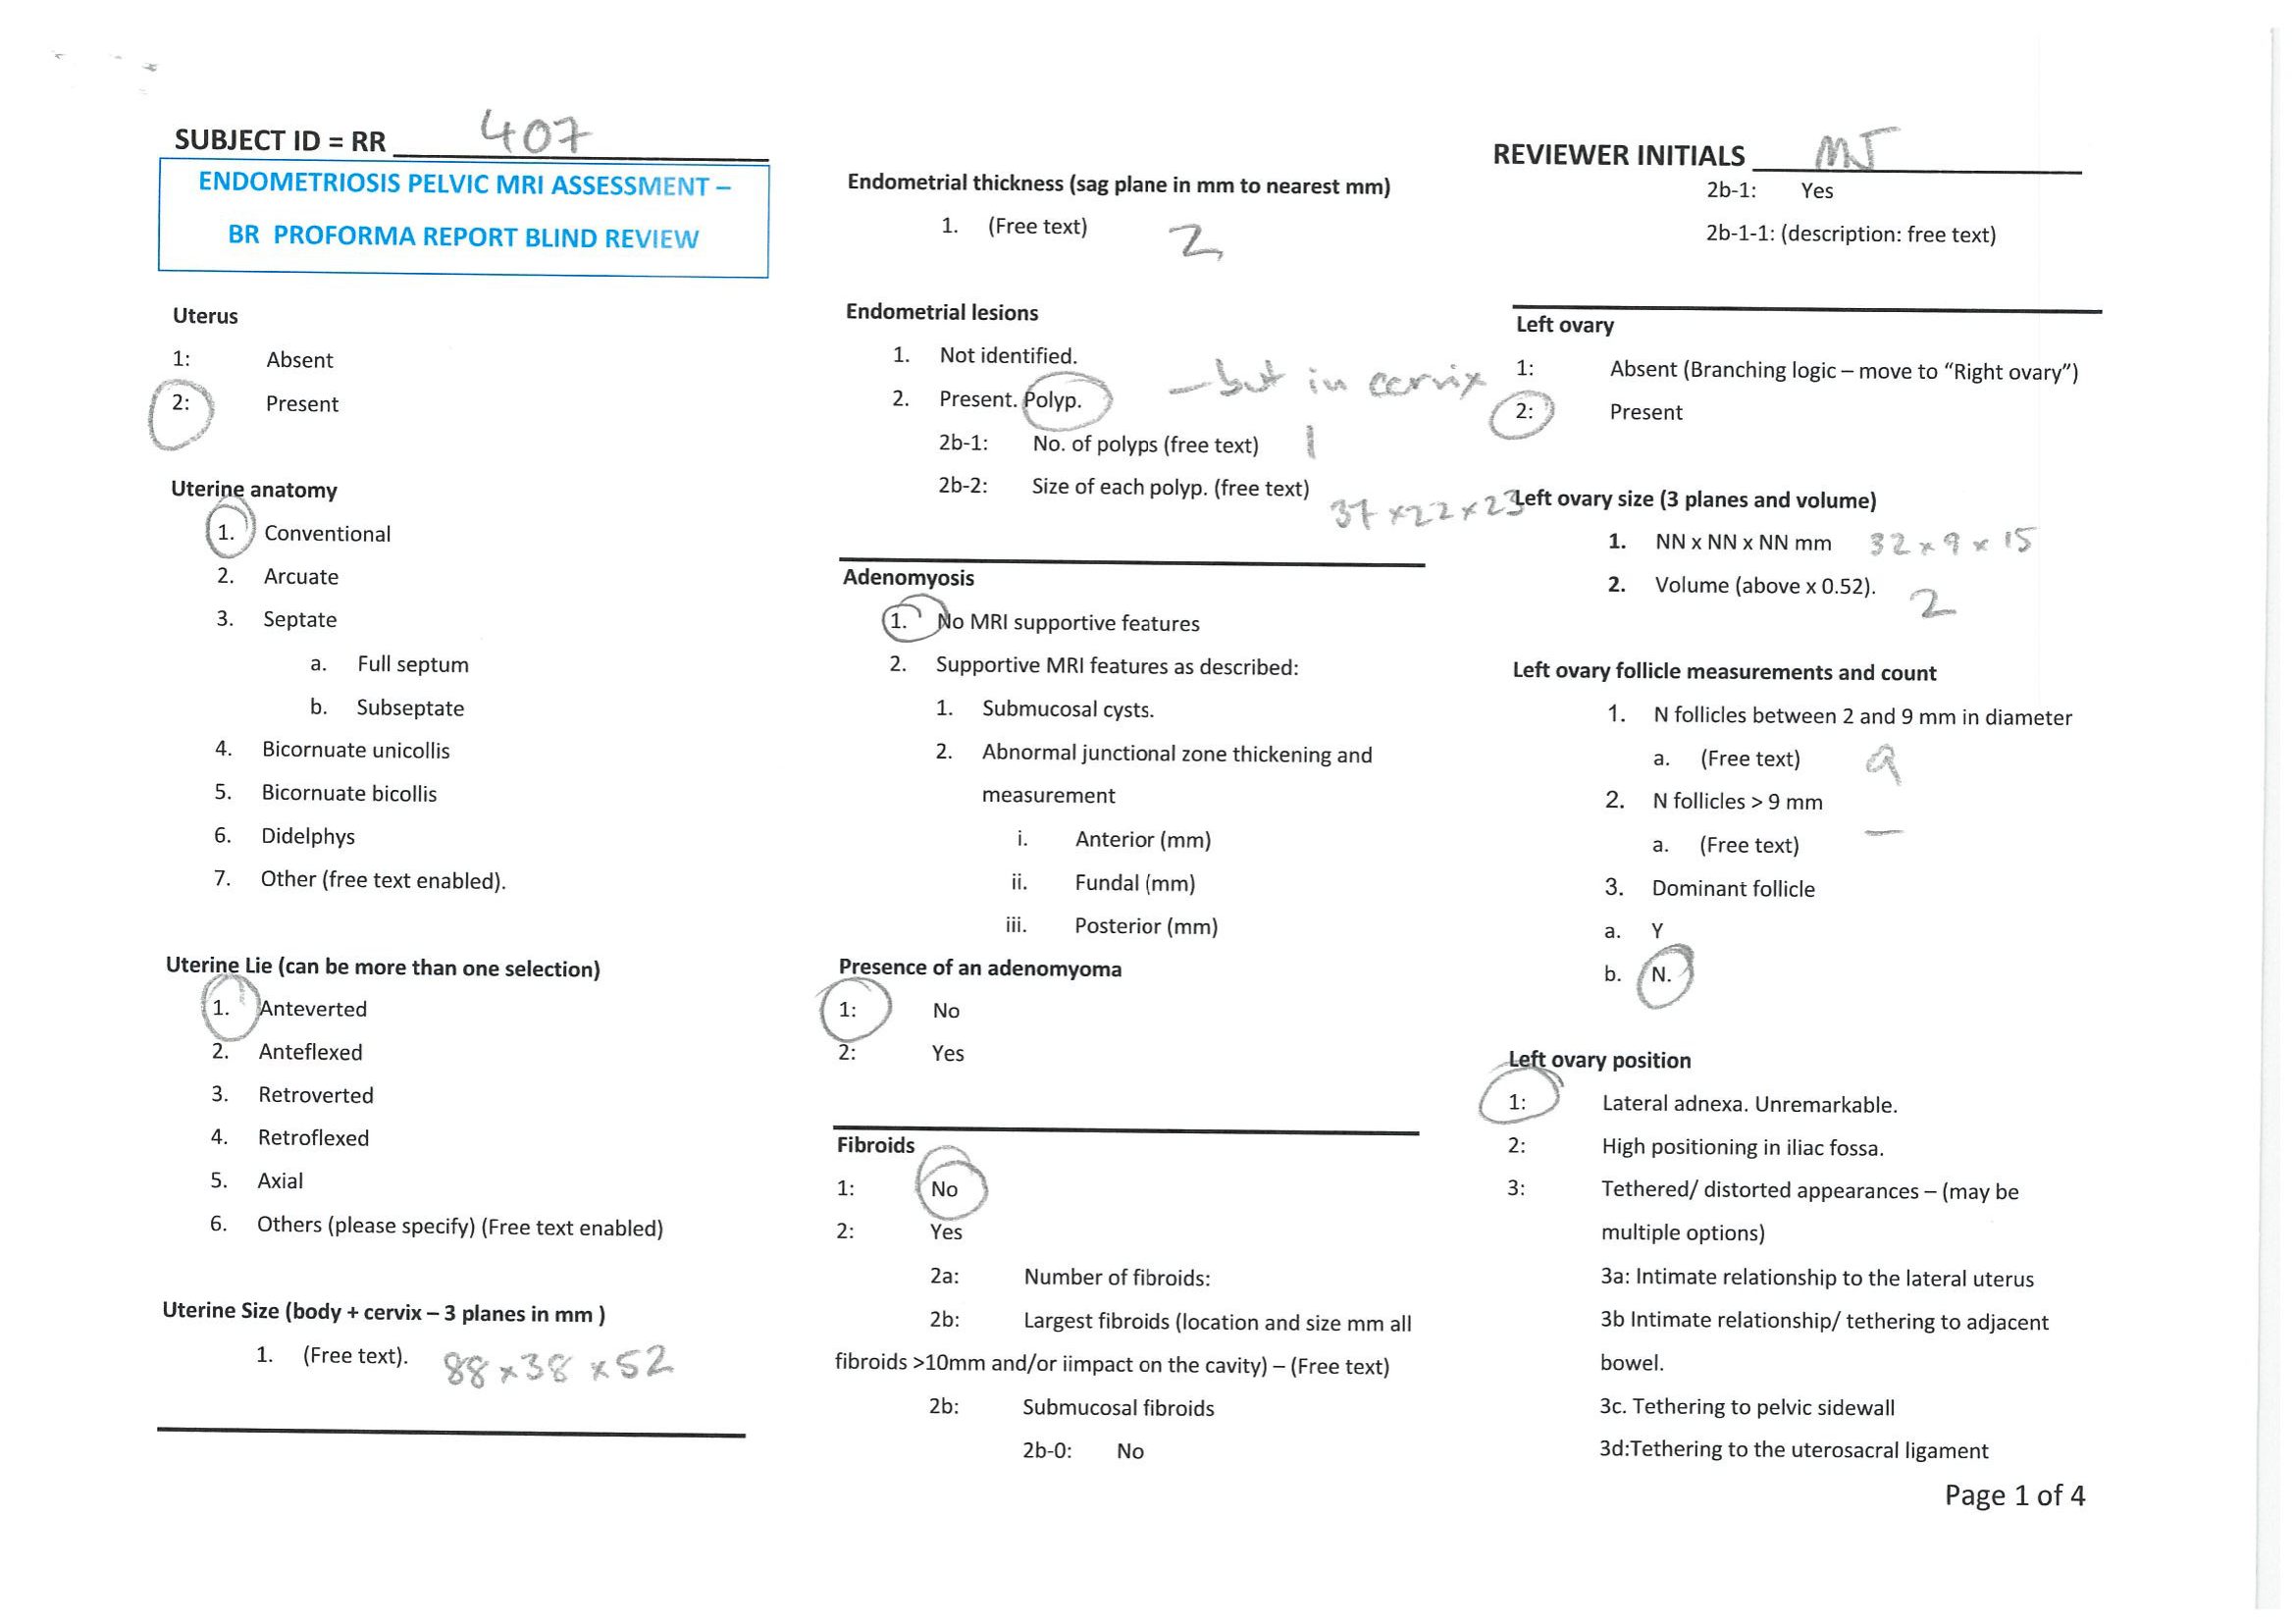 SUBJECT ID = RR 407
ENDOMETRIOSIS PELVIC MRI ASSESSMENT –
BR PROFORMA REPORT BLIND REVIEW
Uterus
1: Absent
2: Present
Uterine anatomy
1. Conventional
2. Arcuate
3. Septate
a. Full septum
b. Subseptate
4. Bicornuate unicollis
5. Bicornuate bicollis
6. Didelphys
7. Other (free text enabled).
Uterine Lie (can be more than one selection)
1. Anteverted
2. Anteflexed
3. Retroverted
4. Retroflexed
5. Axial
6. Others (please specify) (Free text enabled)
Uterine Size (body + cervix – 3 planes in mm )
1. (Free text). 88 x 38 x 52
Endometrial thickness (sag plane in mm to nearest mm)
1. (Free text) 2
Endometrial lesions
1. Not identified.
2. Present. Polyp. – but in cervix
2b-1: No. of polyps (free text) 1
2b-2: Size of each polyp. (free text) 37 x 22 x 23
Adenomyosis
1. No MRI supportive features
2. Supportive MRI features as described:
1. Submucosal cysts.
2. Abnormal junctional zone thickening and
measurement
i. Anterior (mm)
ii. Fundal (mm)
iii. Posterior (mm)
Presence of an adenomyoma
1: No
2: Yes
Fibroids
1: No
2: Yes
2a: Number of fibroids:
2b: Largest fibroids (location and size mm all
fibroids >10mm and/or iimpact on the cavity) – (Free text)
2b: Submucosal fibroids
2b-0: No
REVIEWER INITIALS MJ
2b-1: Yes
2b-1-1: (description: free text)
Left ovary
1: Absent (Branching logic – move to “Right ovary”)
2: Present
Left ovary size (3 planes and volume)
1. NN x NN x NN mm 32 x 9 x 15
2. Volume (above x 0.52). 2
Left ovary follicle measurements and count
1. N follicles between 2 and 9 mm in diameter
a. (Free text) 9
2. N follicles > 9 mm –
a. (Free text)
3. Dominant follicle
a. Y
b. N.
Left ovary position
1: Lateral adnexa. Unremarkable.
2: High positioning in iliac fossa.
3: Tethered/ distorted appearances – (may be
multiple options)
3a: Intimate relationship to the lateral uterus
3b Intimate relationship/ tethering to adjacent
bowel.
3c. Tethering to pelvic sidewall
3d:Tethering to the uterosacral ligament
Page 1 of 4